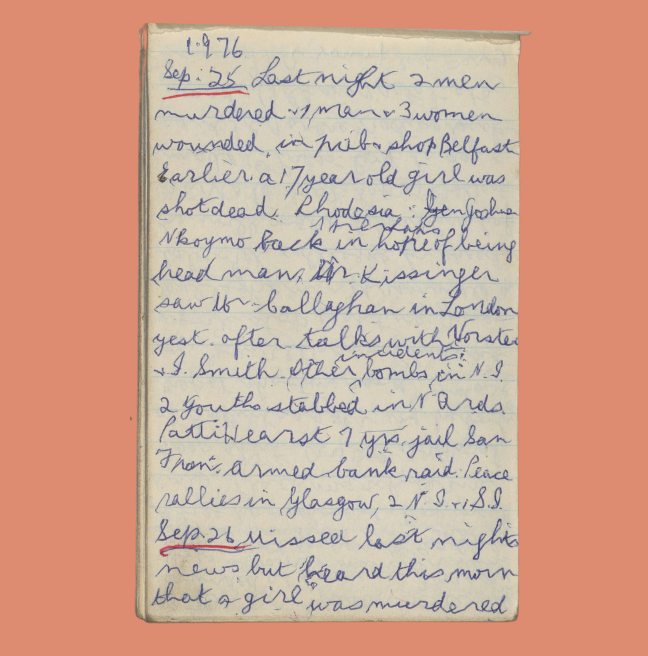 1976
Sep. 25 Last night 2 men
murdered & 1 man & 3 women
wounded in pub & shop Belfast
Earlier a 17 year old girl was
shot dead. Rhodesia: Gen Joshua
Nkoymo back in hope of being
head man. Dr. Kissinger
saw Mr Callaghan in London
yest. after talks with Vorster
& I. Smith. Other incidents: bombs in N.I.
2 youths stabbed in N Ards.
Patti Hearst 7 yrs jail San
Fran. armed bank raid. Peace
rallies in Glasgow, 2 N.I. & 1 S.I.
Sep. 26 Missed last nights
news but heard this morn
that a girl was murdered